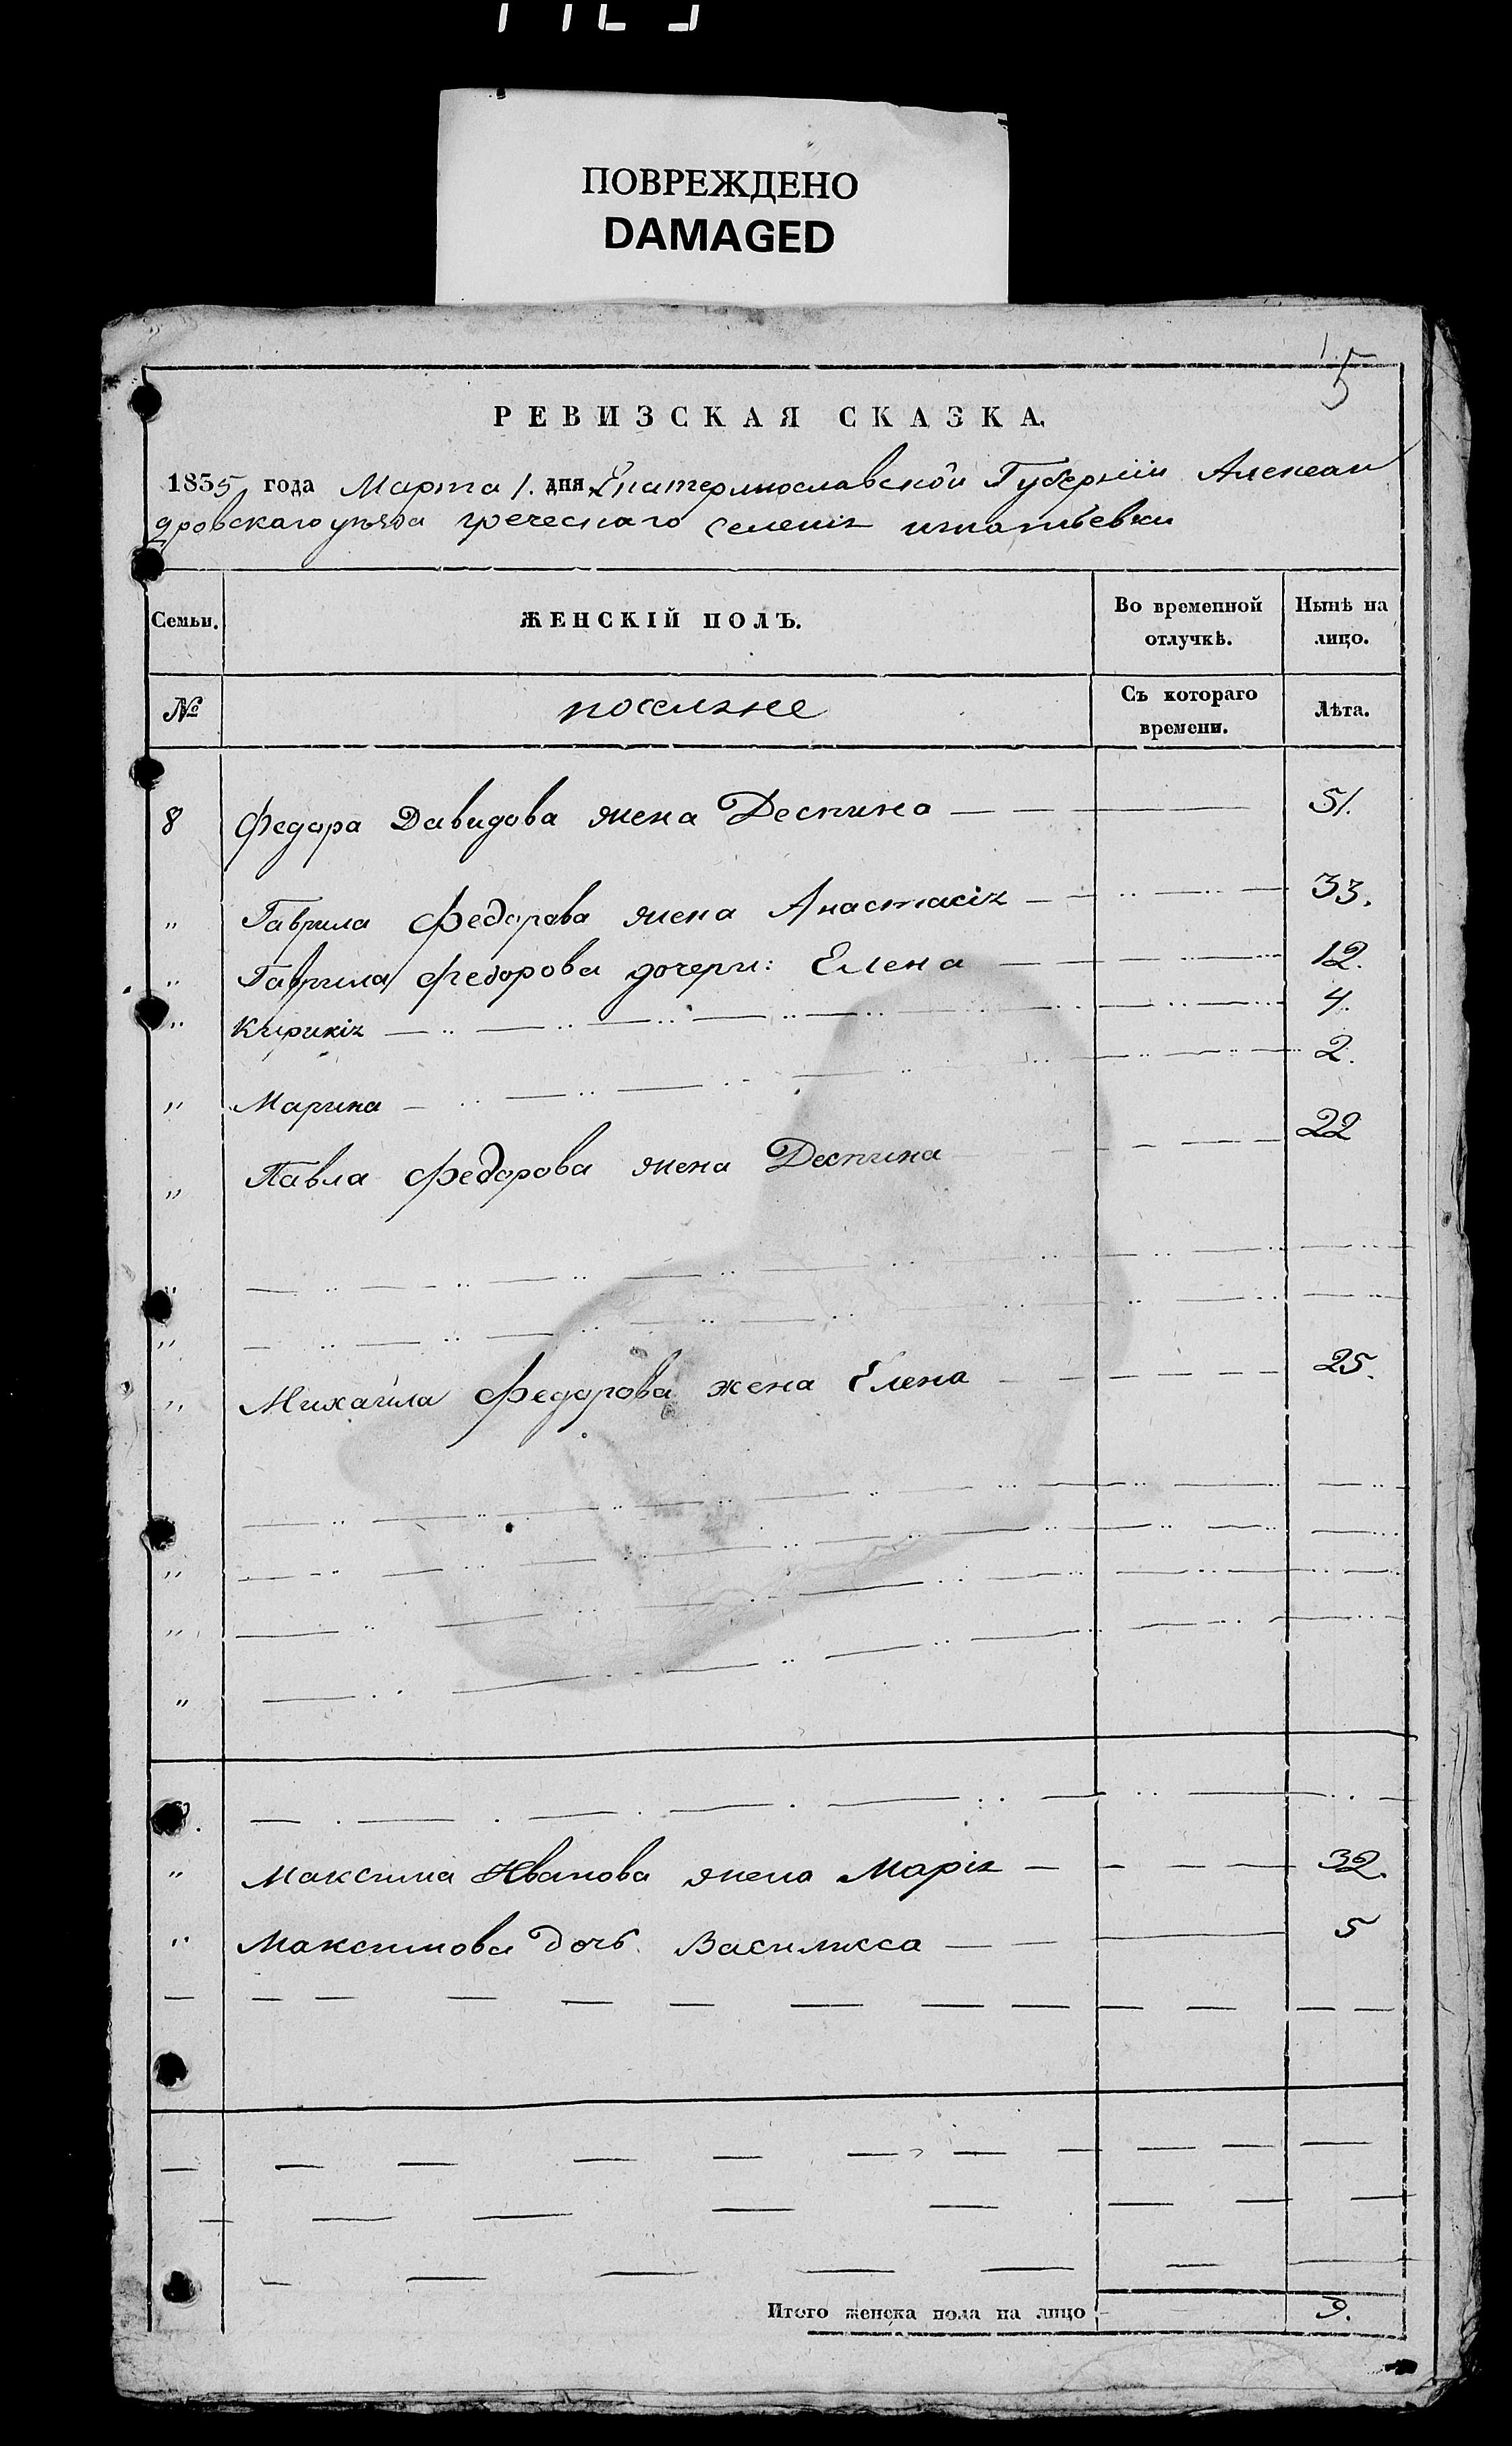 ПОВРЕЖДЕНО
DAMAGED
15
РЕВИЗСКАЯ СКАЗКА.
1835 года Марта 1. дня Екатеринославской Губернии Алексан
дровскаго уѣзда греческаго селенія игнатьевки
Семьи. ЖЕНСКІЙ ПОЛЪ. Во временной отлучкѣ. Нынѣ на лицо.
№ поселяне Съ котораго времени. Лѣта.
8 Федора Давидова жена Деспина 51.
„ Гаврила Федорова жена Анастасія 33.
„ Гаврила Федорова дочери: Елена 12.
„ Кирикія 4.
„ Марина 2.
„ Павла Федорова жена Деспина 22
„
„
„ Михаила Федорова жена Елена 25.
„
„
„
„ Максима Иванова жена Марія 32.
„ Максимова дочь Василисса 5
Итого женска пола на лицо 9.